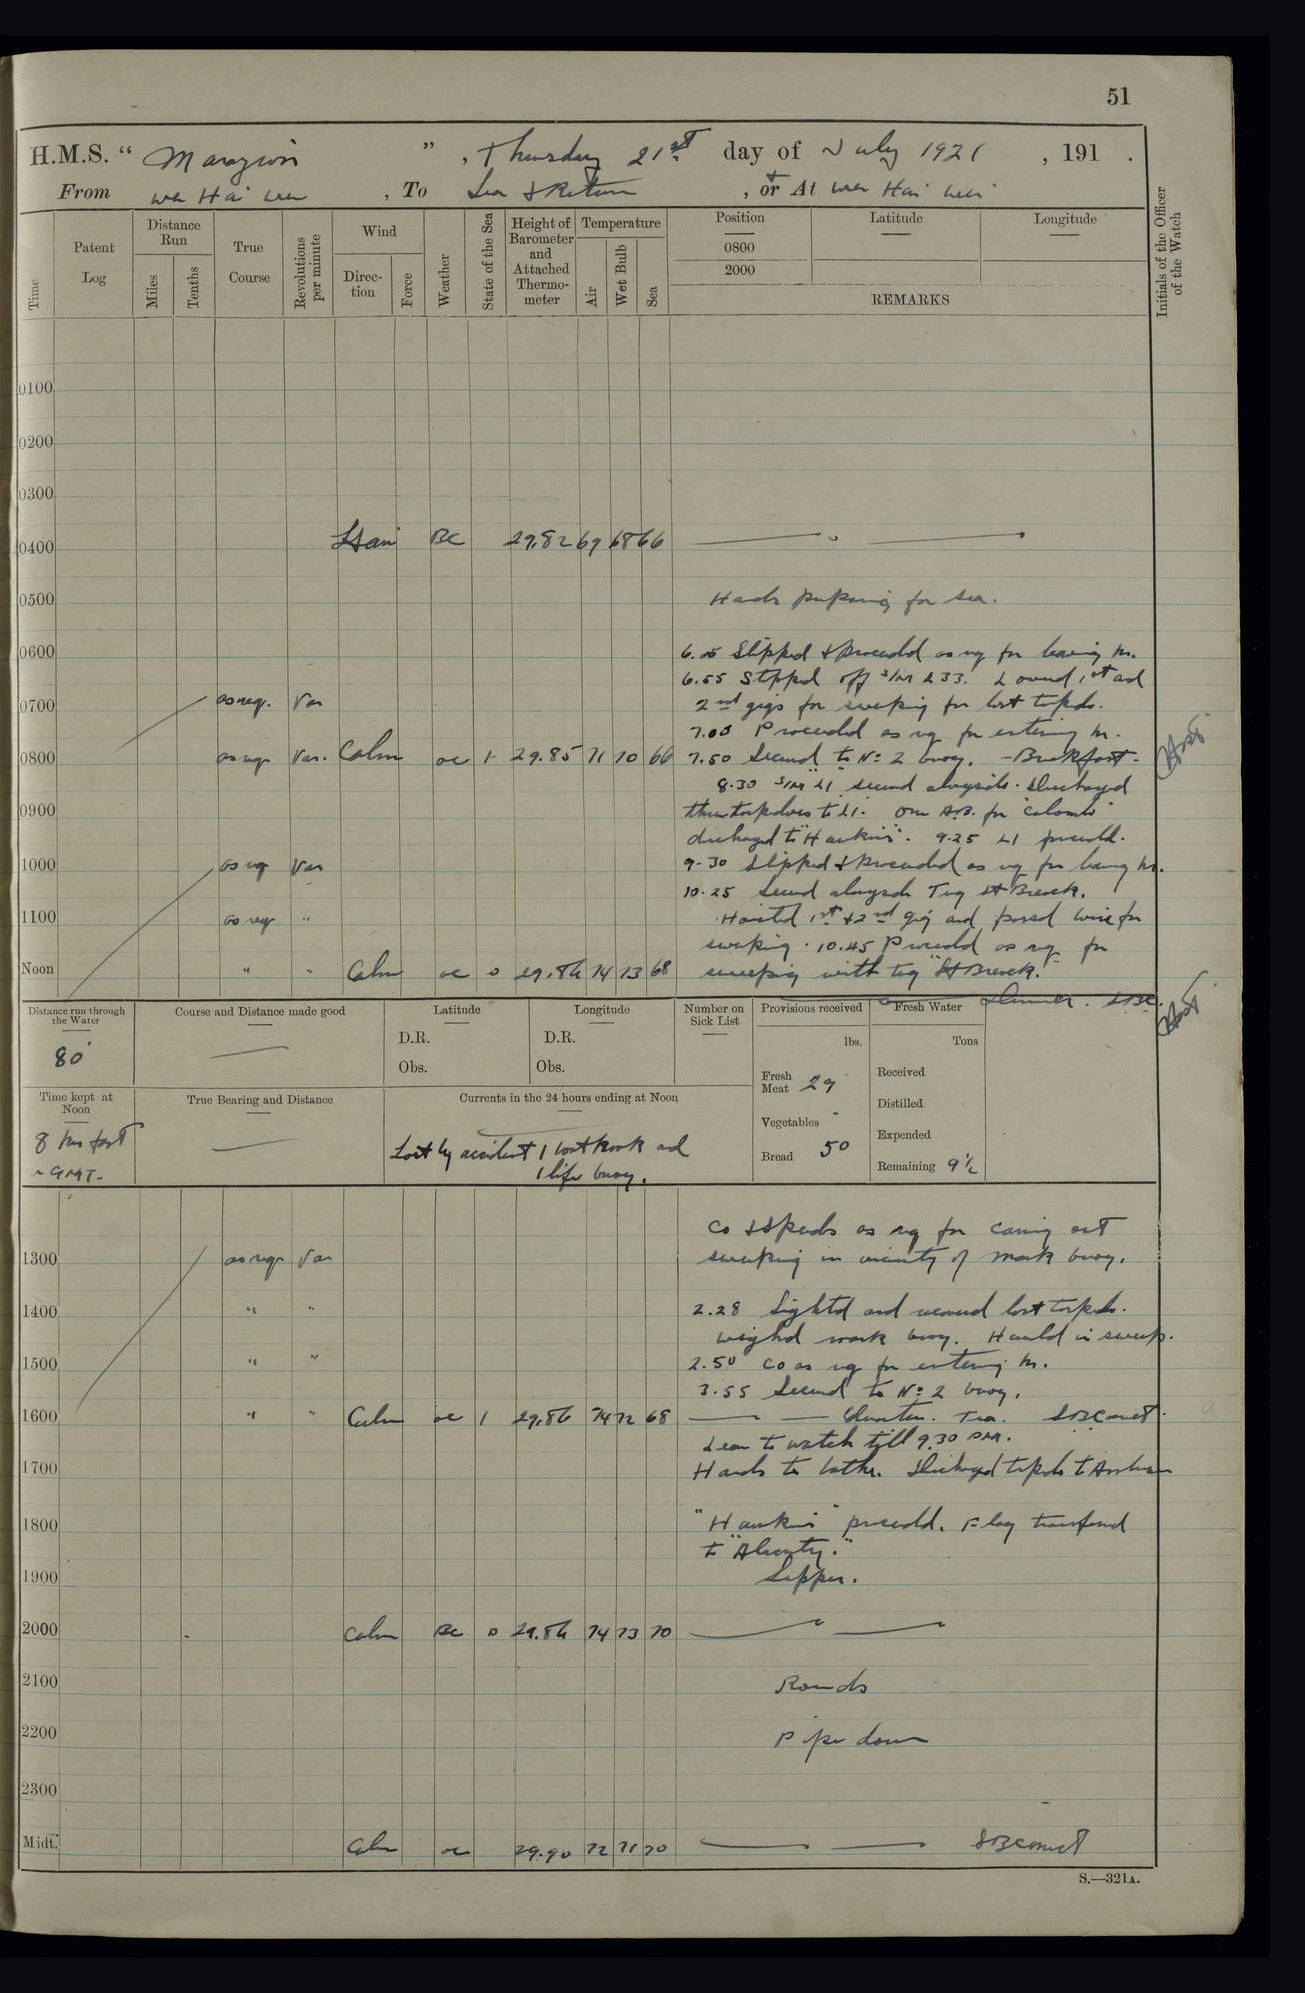 51
H.M.S. “ Marazion ” , Thursday 21st day of July 1921 , 191 .
From Wei Hai Wei , To Sea & Return , or At Wei Hai Wei
Time
Patent Log
Distance Run
Miles
Tenths
True Course
Revolutions per minute
Wind
Direction
Force
Weather
State of the Sea
Height of Barometer and Attached Thermometer
Temperature
Air
Wet Bulb
Sea
Position
0800
2000
Latitude
Longitude
REMARKS
Initials of the Officer of the Watch
0100
0200
0300
0400 BC 29.82 69 68 66
0500 Hands preparing for sea.
0600 6.05 Slipped & proceeded as req for leaving hr.
6.55 Stopped off S/M L33. Lowered 1st and
0700 as req. Var 2nd gigs for sweeping for lost torpedo.
7.00 Proceeded as req for entering hr.
0800 as req Var. Calm oc 1 29.85 71 70 66 7.50 Secured to No 2 buoy. - Breakfast -
8.30 S/M "L1" secured alongside. Discharged
0900 three torpedoes to L1. One A.B. for "Colombo"
discharged to "Hawkins". 9.25 L1 proceeded.
1000 as req Var 9.30 Slipped & proceeded as req for leaving hr.
10.25 Secured alongside Tug St Breock.
1100 as req " Hoisted 1st & 2nd gig and passed wire for
sweeping. 10.45 Proceeded as req for
Noon " " Calm oc 0 29.86 74 73 68 sweeping with tug "St Breock."
Dinner.
Distance run through the Water
80
Course and Distance made good
Latitude
D.R.
Obs.
Longitude
D.R.
Obs.
Number on Sick List
Provisions received
lbs.
Fresh Meat 29
Vegetables -
Bread 50
Fresh Water
Tons
Received
Distilled
Expended
Remaining 9½
Time kept at Noon
8 hrs fast
on GMT.
True Bearing and Distance
Currents in the 24 hours ending at Noon
Lost by accident 1 boathook and
1 life buoy.
Co & Speeds as req for carrying out
1300 as req Var sweeping in vicinity of mark buoy.
1400 " " 2.28 Sighted and recovered lost torpedo.
Weighed mark buoy. Hauled in sweep.
1500 " " 2.50 Co as req for entering hr.
3.55 Secured to No 2 buoy.
1600 " " Calm oc 1 29.86 74 72 68 Quarters. Tea.
Leave to watch till 9.30 PM.
1700 Hands to bathe. Discharged torpedo to
1800 "Hawkins" proceeded. Flag transferred
to "Alacrity."
1900 Supper.
2000 Calm BC 0 29.86 74 73 70
2100 Rounds
2200 Pipe down
2300
Midt. Calm oc 29.90 72 71 70
S.—321A.